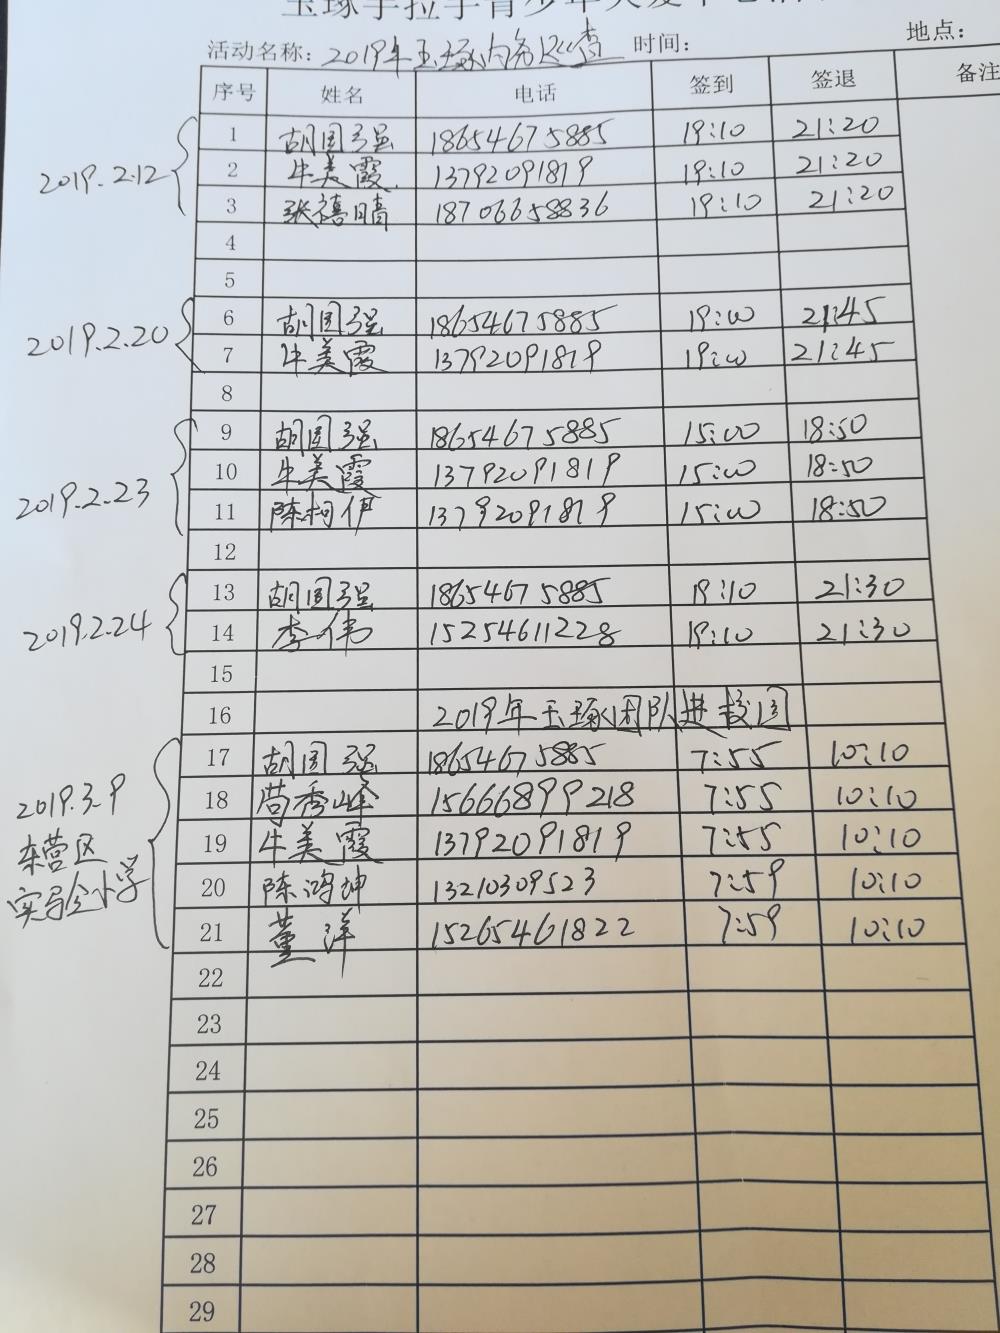 玉琢手拉手青少年
活动名称: 2019年玉琢内务巡查 时间: 地点:
序号 姓名 电话 签到 签退 备注
2019.2.12
1 胡国强 18654675885 19:10 21:20
2 牛美霞 13792091819 19:10 21:20
3 张禧晴 18706658836 19:10 21:20
4
5
2019.2.20
6 胡国强 18654675885 19:00 21:45
7 牛美霞 13792091819 19:00 21:45
8
2019.2.23
9 胡国强 18654675885 15:00 18:50
10 牛美霞 13792091819 15:00 18:50
11 陈柯伊 13792091819 15:00 18:50
12
2019.2.24
13 胡国强 18654675885 19:10 21:30
14 李伟 15254611228 19:10 21:30
15
16 2019年玉琢团队进校园
2019.3.9
东营区
实验小学
17 胡国强 18654675885 7:55 10:10
18 苘秀峰 15666899218 7:55 10:10
19 牛美霞 13792091819 7:55 10:10
20 陈鸿坤 13210309523 7:59 10:10
21 董洋 15265461822 7:59 10:10
22
23
24
25
26
27
28
29